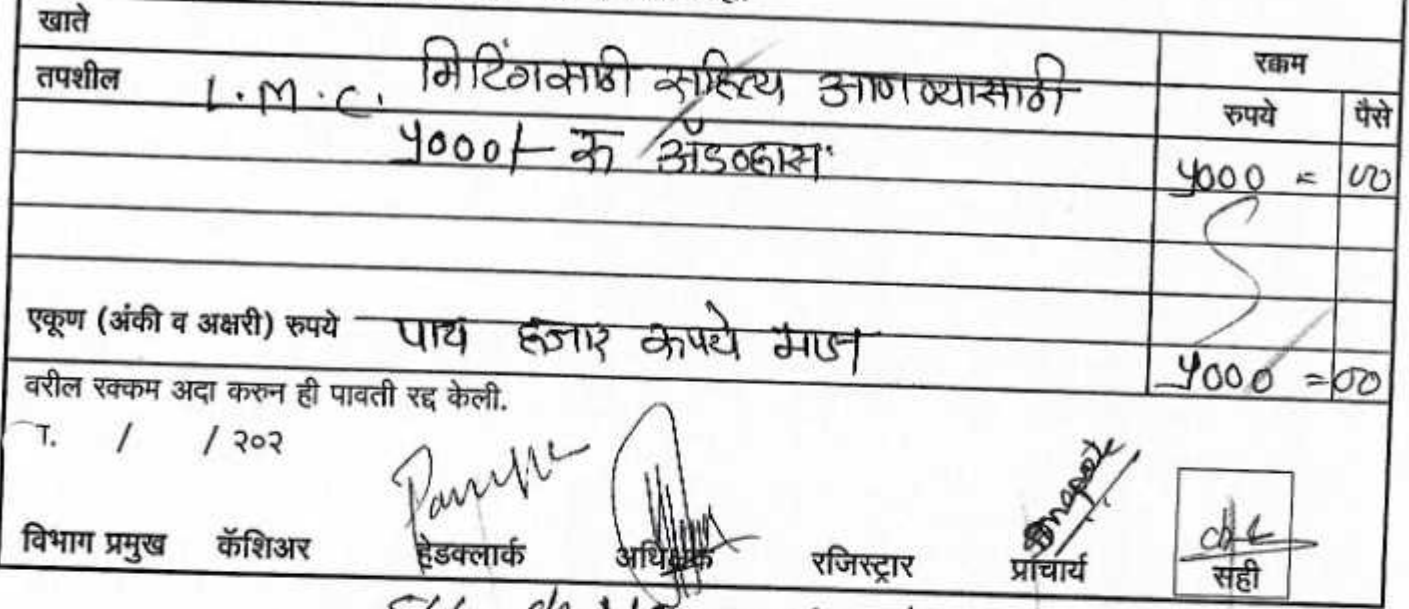 खाते
रक्कम
तपशील L.M.C. मिटिंगसाठी साहित्य आणण्यासाठी
रुपये पैसे
५०००/- रु अॅडव्हास
५००० = ००
एकूण (अंकी व अक्षरी) रुपये पाच हजार रुपये मात्र
५००० = ००
वरील रक्कम अदा करुन ही पावती रद्द केली.
/ / २०२
विभाग प्रमुख कॅशिअर हेडक्लार्क अधिक्षक रजिस्ट्रार प्राचार्य सही